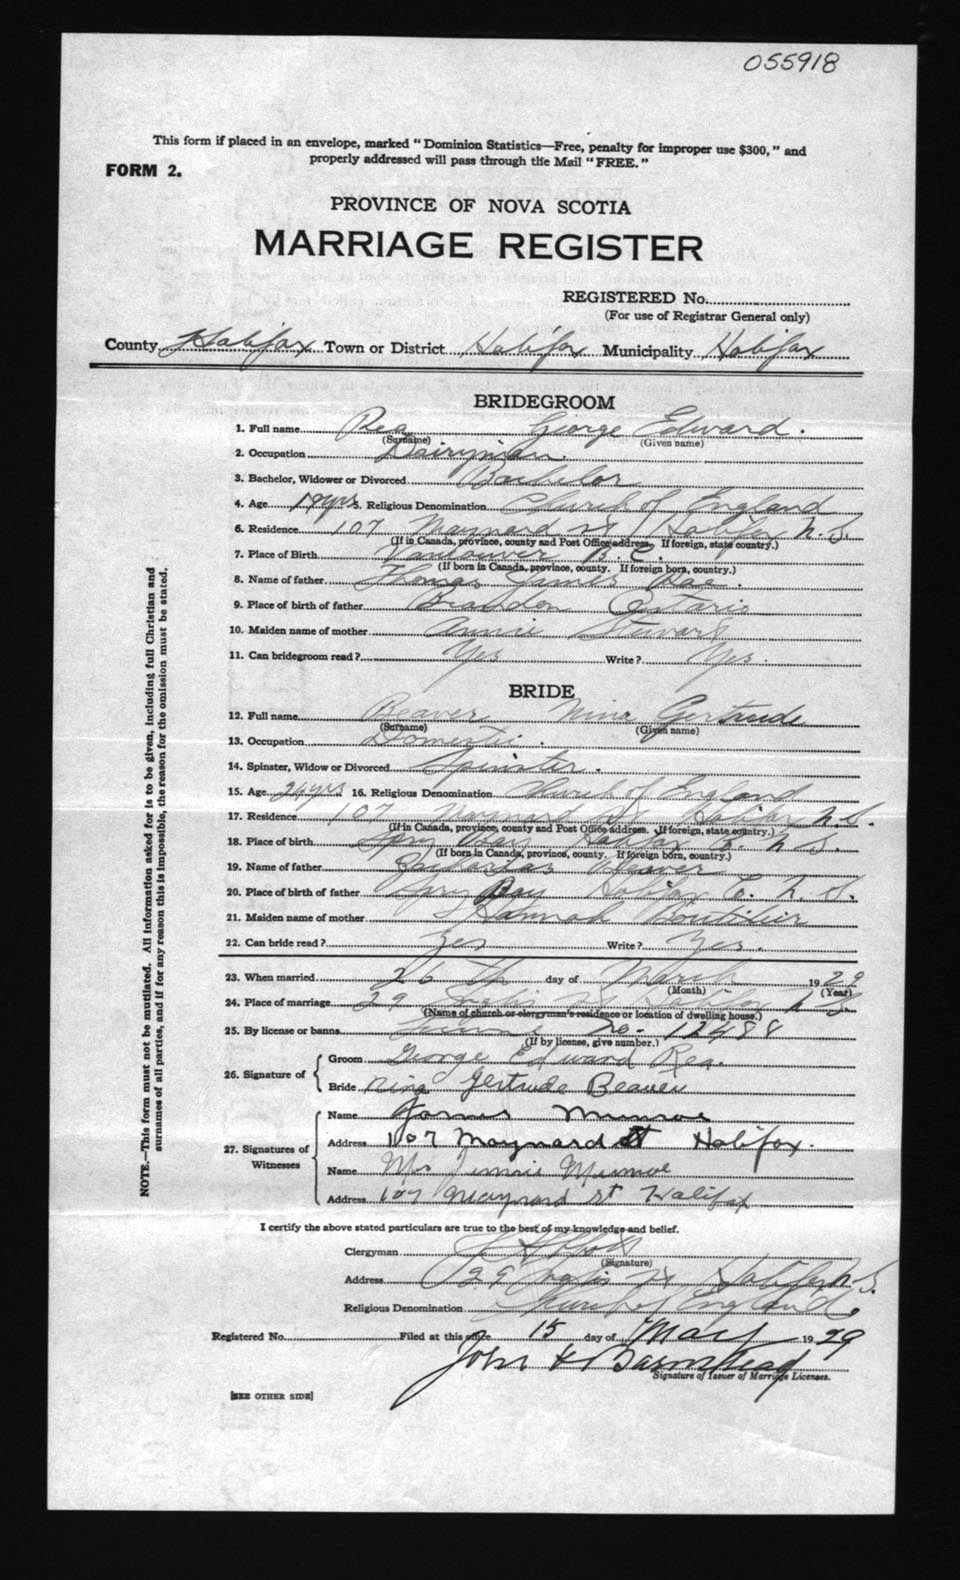 055918
This form if placed in an envelope, marked "Dominion Statistics—Free, penalty for improper use $300," and
properly addressed will pass through the Mail "FREE."
FORM 2.
PROVINCE OF NOVA SCOTIA
MARRIAGE REGISTER
REGISTERED No.
(For use of Registrar General only)
County Halifax Town or District Halifax Municipality Halifax
BRIDEGROOM
1. Full name Rea George Edward.
(Surname) (Given name)
2. Occupation Dairyman.
3. Bachelor, Widower or Divorced Bachelor
4. Age 19 yrs 5. Religious Denomination Church of England
6. Residence 107 Maynard St Halifax N.S.
(If in Canada, province, county and Post Office address. If foreign, state country.)
7. Place of Birth Vancouver B.C.
(If born in Canada, province, county. If foreign born, country.)
8. Name of father Thomas James Rae.
9. Place of birth of father Brandon Ontario
10. Maiden name of mother Annie Stewart
11. Can bridegroom read? Yes Write? Yes.
BRIDE
12. Full name Beaver Nina Gertrude
(Surname) (Given name)
13. Occupation Domestic.
14. Spinster, Widow or Divorced Spinster.
15. Age yrs 16. Religious Denomination Church of England
17. Residence 107 Maynard St Halifax N.S.
(If in Canada, province, county and Post Office address. If foreign, state country.)
18. Place of birth Spry Bay Halifax Co. N.S.
(If born in Canada, province, county. If foreign born, country.)
19. Name of father Beaver
20. Place of birth of father Spry Bay Halifax Co. N.S.
21. Maiden name of mother Hannah Boutilier
22. Can bride read? Yes Write? Yes.
23. When married 26th day of March 1929
(Month) (Year)
24. Place of marriage 29 Inglis St Halifax N S
(Name of church or clergyman's residence or location of dwelling house.)
25. By license or banns License No. 12488
(If by license, give number.)
26. Signature of Groom George Edward Rea.
Bride Nina Gertrude Beaver
27. Signatures of Witnesses Name James Munroe
Address 107 Maynard St Halifax.
Name Mrs Jennie Munroe
Address 107 Maynard St Halifax
I certify the above stated particulars are true to the best of my knowledge and belief.
Clergyman
(Signature)
Address 29 Inglis St Halifax N.S.
Religious Denomination Church of England.
Registered No. Filed at this office 15 day of May 1929
John H Barnstead
Signature of Issuer of Marriage Licenses.
[SEE OTHER SIDE]
NOTE.—This form must not be mutilated. All information asked for is to be given, including full Christian and
surnames of all parties, and if for any reason this is impossible, the reason for the omission must be stated.